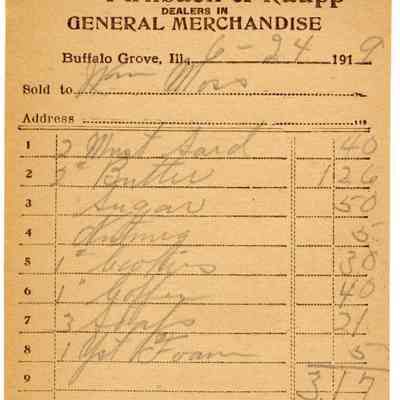 & Raupp
DEALERS IN
GENERAL MERCHANDISE
Buffalo Grove, Ill., 6-24 1919
Sold to Wm Moss
Address
1 2 Must Sard 40
2 2# Butter 1 26
3 Sugar 50
4 Nutmeg 5
5 1# Cookies 30
6 1# Coffee 40
7 3 21
8 1 Yst Foam 5
9 3 17